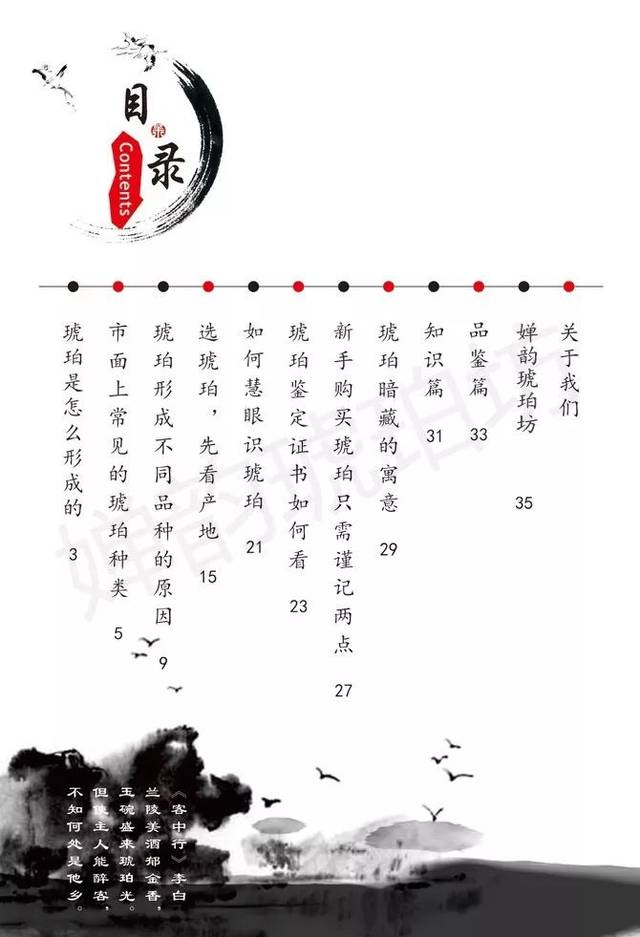 目录
Contents
琥珀是怎么形成的 3
市面上常见的琥珀种类 5
琥珀形成不同品种的原因 9
选琥珀，先看产地 15
如何慧眼识琥珀 21
琥珀鉴定证书如何看 23
新手购买琥珀只需谨记两点 27
琥珀暗藏的寓意 29
知识篇 31
品鉴篇 33
婵韵琥珀坊 35
关于我们
婵韵琥珀坊
《客中行》李白
兰陵美酒郁金香，
玉碗盛来琥珀光。
但使主人能醉客，
不知何处是他乡。